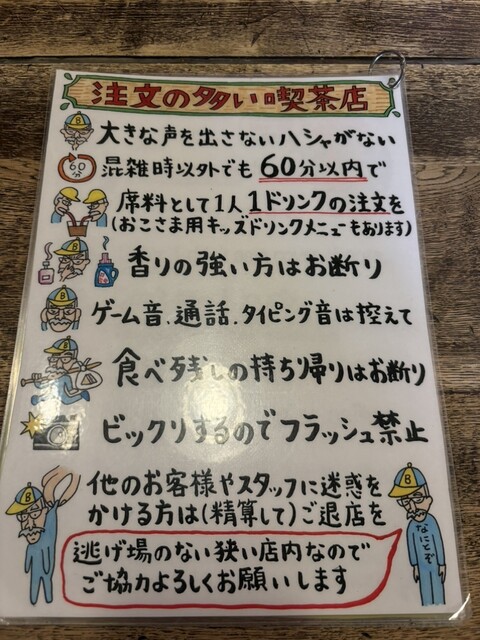 注文の多い喫茶店
大きな声を出さないハシャがない
60分
混雑時以外でも60分以内で
席料として1人1ドリンクの注文を
(おこさま用キッズドリンクメニューもあります)
香りの強い方はお断り
ゲーム音、通話、タイピング音は控えて
食べ残しの持ち帰りはお断り
ビックリするのでフラッシュ禁止
他のお客様やスタッフに迷惑を
かける方は(精算して)ご退店を
逃げ場のない狭い店内なので
ご協力よろしくお願いします
なにとぞ
B
B
B
B
B